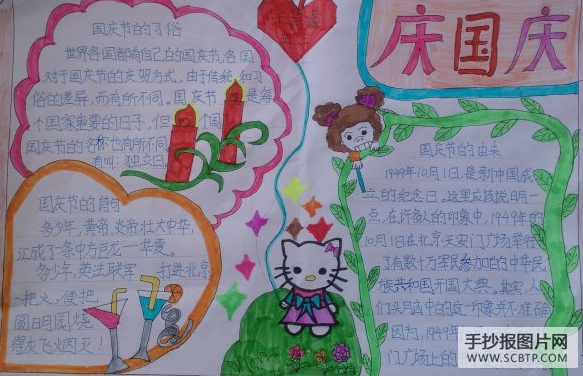 国庆节的习俗
世界各国都有自己的国庆节,各国
对于国庆节的庆贺方式,由于传统和习
俗的差异,而有所不同。国庆节 是每
个国家重要的日子,但 国
国庆节的名称也有所不同
有叫:独立日
庆国庆
国庆节的由来
1949年10月1日,是新中国成
立的纪念日。这里应该说明一
点,在许多人的印象中,1949年的
10月1日在北京天安门广场举行
了有数十万军民参加的中华民
族共和国开国大典。其实,人
们头脑中的这一印象并不准确
因为,1949年
门广场上的
国庆节的诗句
多少年,黄帝、炎帝壮大中华,
汇成了一条中方巨龙一华爱。
多少年,英法联军 打进北京
一把火,便把
圆明园烧
得灰飞烟灭!
手抄报图片网
WWW.SCBTP.COM